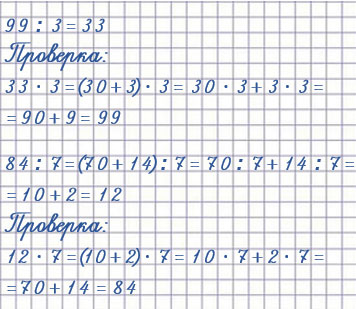 99 : 3 = 33
Проверка:
33 · 3 = (30 + 3) · 3 = 30 · 3 + 3 · 3 =
= 90 + 9 = 99
84 : 7 = (70 + 14) : 7 = 70 : 7 + 14 : 7 =
= 10 + 2 = 12
Проверка:
12 · 7 = (10 + 2) · 7 = 10 · 7 + 2 · 7 =
= 70 + 14 = 84